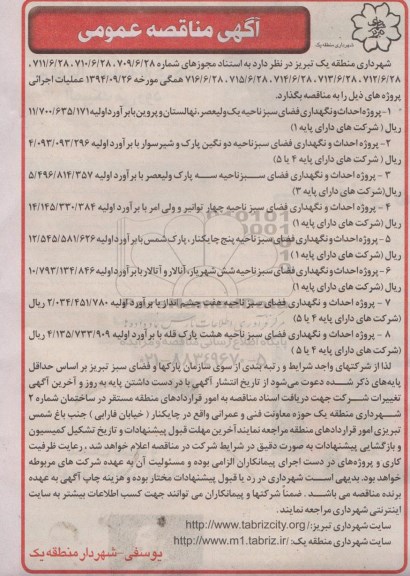 آگهی مناقصه عمومی
شهرداری منطقه یک
شهرداری منطقه یک تبریز در نظر دارد به استناد مجوزهای شماره ۷۰۹/۶/۲۸ ، ۷۱۰/۶/۲۸ ، ۷۱۱/۶/۲۸ ،
۷۱۲/۶/۲۸ ، ۷۱۳/۶/۲۸ ، ۷۱۴/۶/۲۸ ، ۷۱۵/۶/۲۸ ، ۷۱۶/۶/۲۸ همگی مورخه ۱۳۹۴/۰۹/۲۶ عملیات اجرائی
پروژه های ذیل را به مناقصه بگذارد.
۱- پروژه احداث و نگهداری فضای سبز ناحیه یک ولیعصر، نهالستان و پروین با برآورد اولیه ۱۱/۷۰۰/۶۳۵/۱۷۱
ریال ( شرکت های دارای پایه ۱)
۲- پروژه احداث و نگهداری فضای سبز ناحیه دو نگین پارک و شیرسوار با برآورد اولیه ۴/۰۹۳/۰۹۳/۲۹۶
ریال (شرکت های دارای پایه ۴ یا ۵)
۳ - پروژه احداث و نگهداری فضای سبز ناحیه سه پارک ولیعصر با برآورد اولیه ۵/۴۹۶/۸۱۴/۳۵۷
ریال(شرکت های دارای پایه ۳)
۴ - پروژه احداث و نگهداری فضای سبز ناحیه چهار توانیر و ولی امر با برآورد اولیه ۱۴/۱۴۵/۳۳۰/۳۸۴
ریال (شرکت های دارای پایه ۱)
۵ - پروژه احداث و نگهداری فضای سبز ناحیه پنج چایکنار، پارک شمس با برآورد اولیه ۱۲/۵۴۵/۵۸۱/۶۲۶
ریال (شرکت های دارای پایه ۱)
۶- پروژه احداث و نگهداری فضای سبز ناحیه شش شهریار، آبالار و آتالار با برآورد اولیه ۱۰/۷۹۳/۱۳۴/۸۴۶
ریال (شرکت های دارای پایه ۱)
۷ - پروژه احداث و نگهداری فضای سبز ناحیه هفت چشم انداز با برآورد اولیه ۲/۰۳۴/۴۵۱/۷۸۰ ریال
(شرکت های دارای پایه ۴ یا ۵)
۸ - پروژه احداث و نگهداری فضای سبز ناحیه هشت پارک قله با برآورد اولیه ۴/۱۳۵/۷۳۳/۹۰۹ ریال
(شرکت های دارای پایه ۴ یا ۵)
لذا از شرکتهای واجد شرایط و رتبه بندی از سوی سازمان پارکها و فضای سبز تبریز بر اساس حداقل
پایه‌های ذکر شده دعوت می‌شود از تاریخ انتشار آگهی با در دست داشتن پایه به روز و آخرین آگهی
تغییرات شرکت جهت دریافت اسناد مناقصه به امور قراردادهای منطقه مستقر در ساختمان شماره ۲
شهرداری منطقه یک حوزه معاونت فنی و عمرانی واقع در چایکنار ( خیابان فارابی ) جنب باغ شمس
تبریزی امور قراردادهای منطقه مراجعه نمایند آخرین مهلت قبول پیشنهادات و تاریخ تشکیل کمیسیون
و بازگشایی پیشنهادات به صورت دقیق در شرایط شرکت در مناقصه اعلام خواهد شد ، رعایت ظرفیت
کاری و پروژه‌های در دست اجرای پیمانکاران الزامی بوده و مسئولیت آن به عهده شرکت های مربوطه
خواهد بود. بدیهی است شهرداری در رد یا قبول پیشنهادات مختار بوده و هزینه چاپ آگهی به عهده
برنده مناقصه می باشد . ضمناً شرکتها و پیمانکاران می توانند جهت کسب اطلاعات بیشتر به سایت
اینترنتی شهرداری مراجعه نمایند.
سایت شهرداری تبریز: http://www.tabrizcity.org/
سایت شهرداری منطقه یک: http://www.m1.tabriz.ir/
یوسفی - شهردار منطقه یک